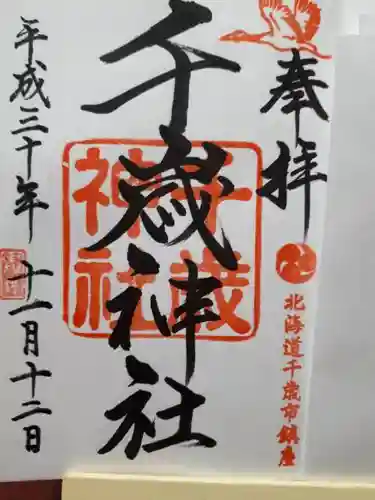 奉拝
北海道千歳市鎮座
千歳神社
千歳神社
平成三十年十一月十二日